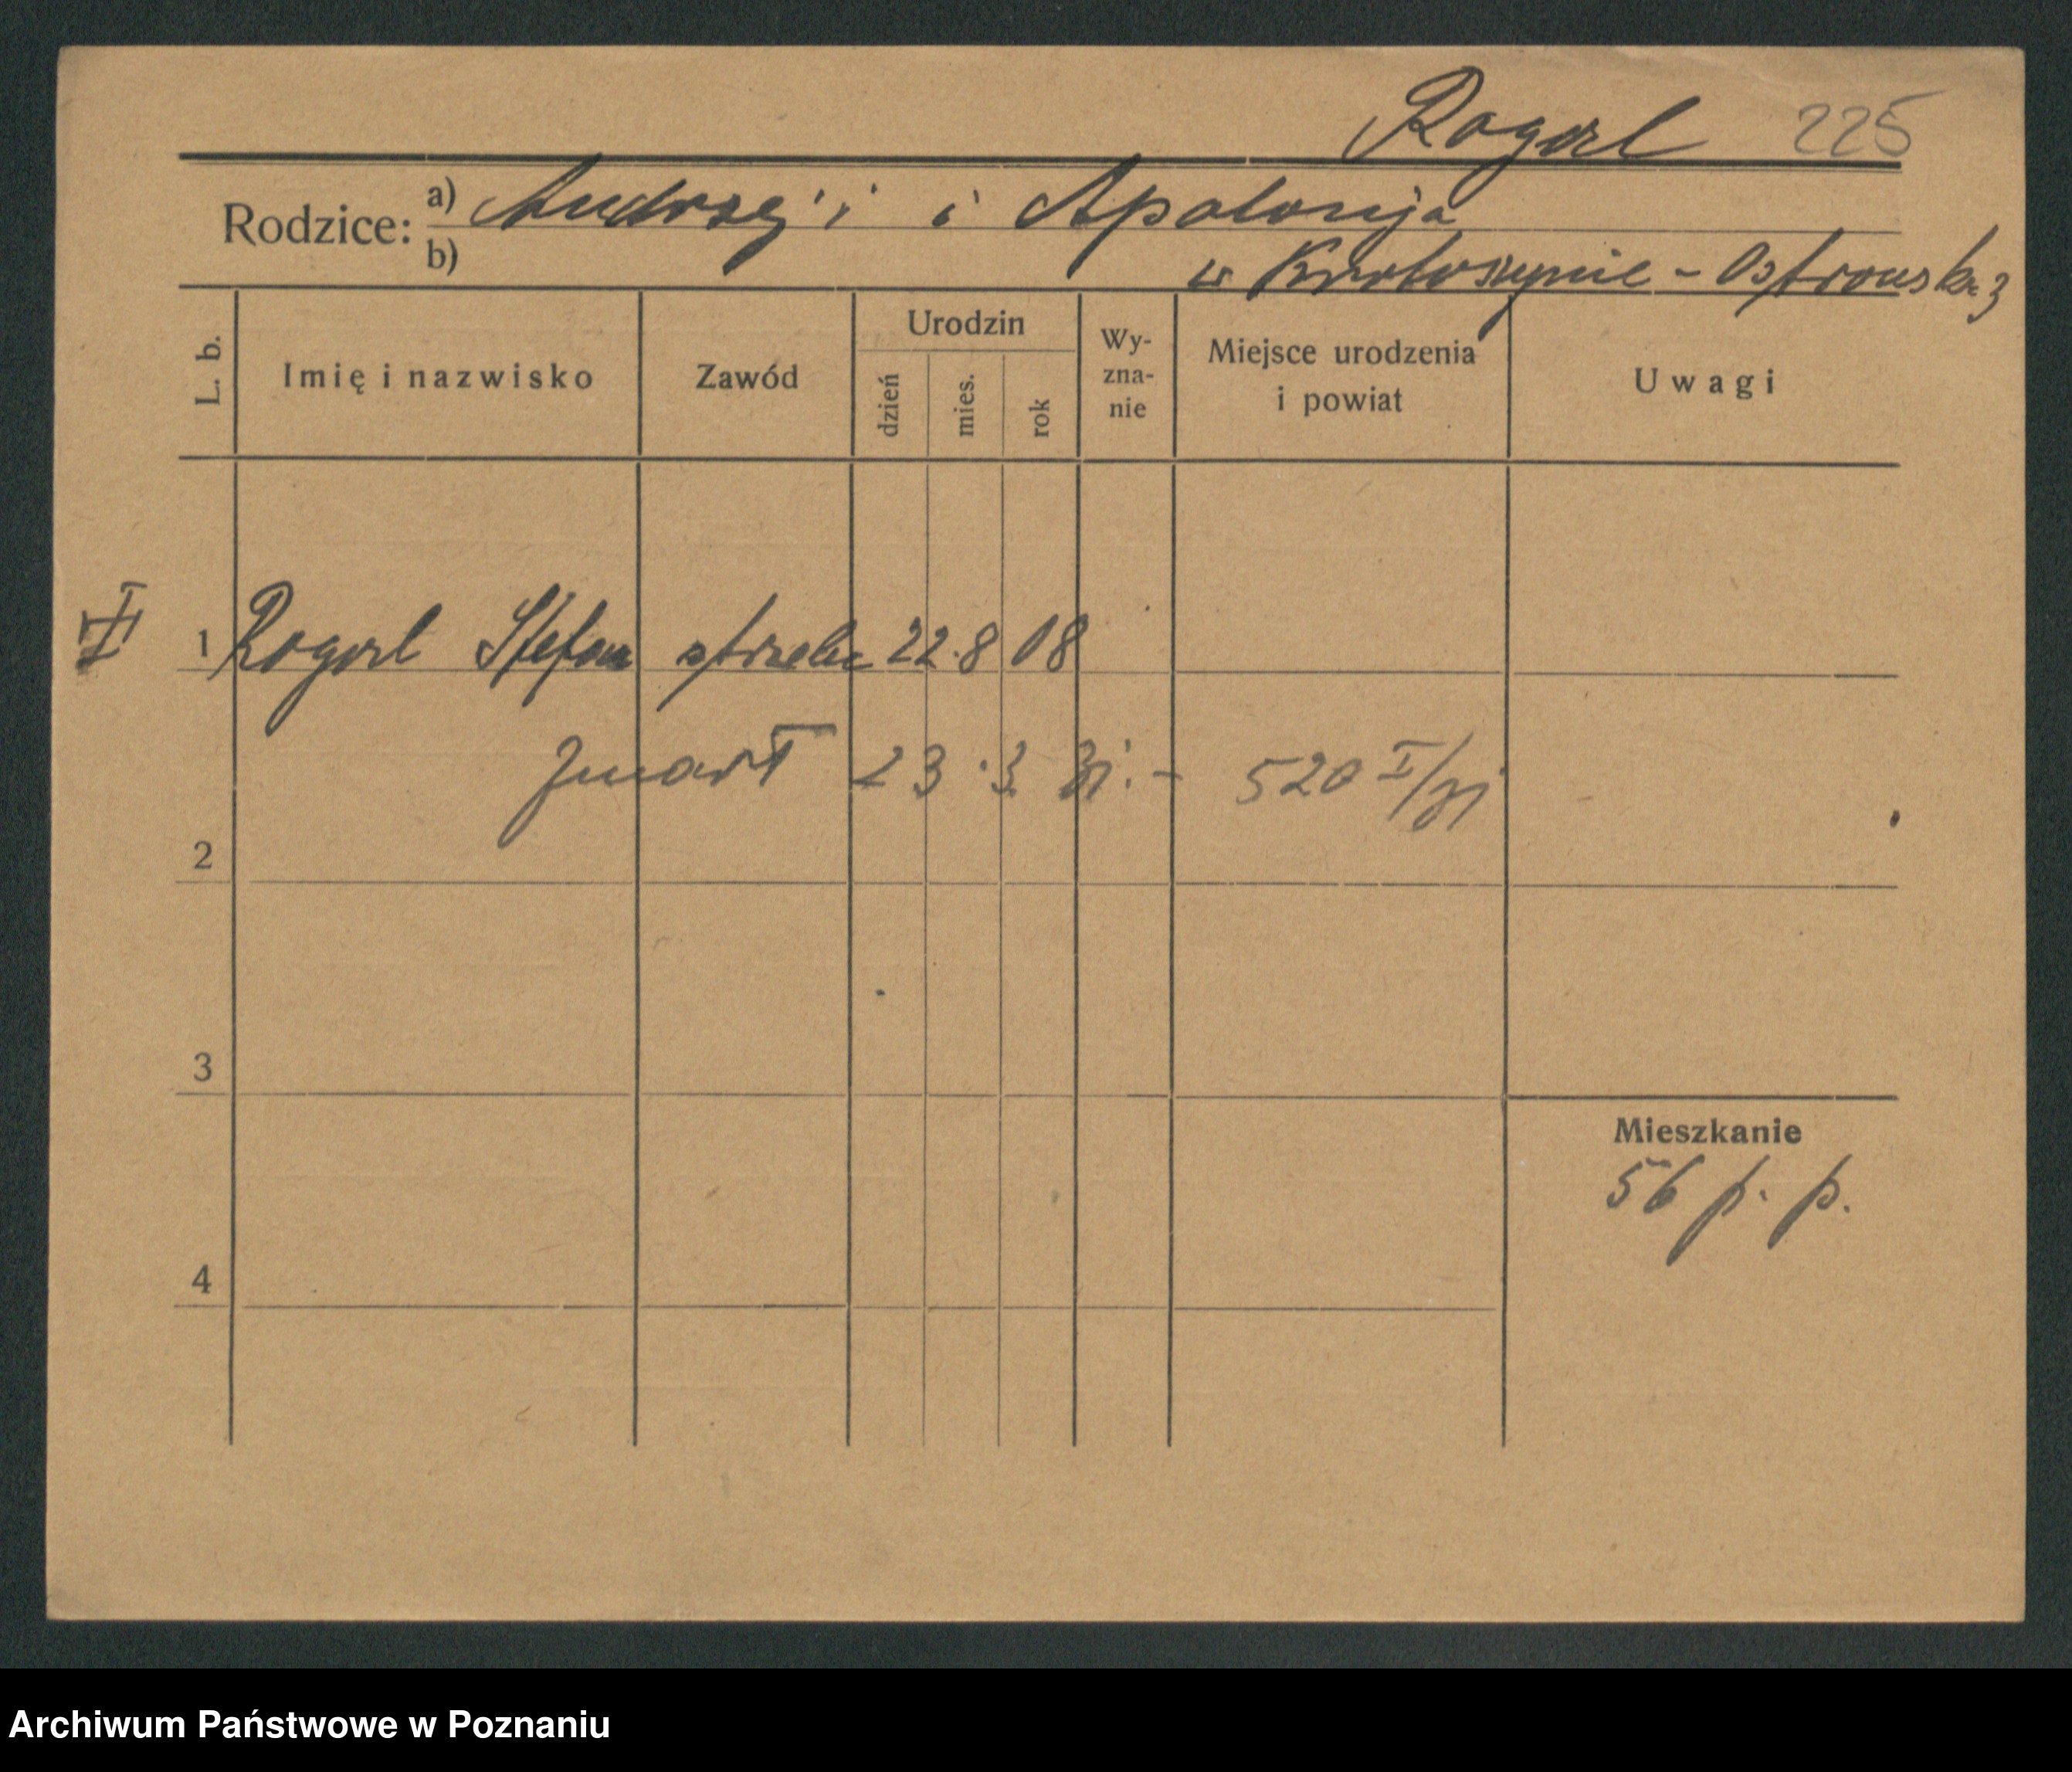 Rogozl 225
Rodzice: a) Andrzej i Apolonija
b) w Krotoszynie - Ostrowska 3
L. b. Imię i nazwisko Zawód Urodzin dzień mies. rok Wy-zna-nie Miejsce urodzenia i powiat Uwagi
1 Stefan strzelec 22. 8 08
zmarł 23. 3. 31. - 520 I/31
2
3
Mieszkanie
56 p. p.
4
Archiwum Państwowe w Poznaniu